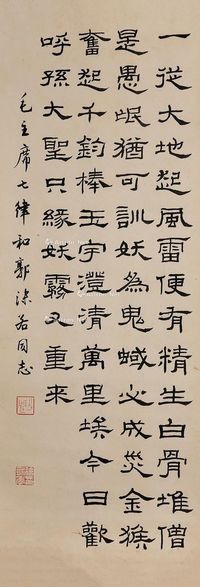 一從大地起風雷便有精生白骨堆僧
是愚氓猶可訓妖為鬼蜮必成災金猴
奮起千鈞棒玉宇澄清萬里埃今日歡
呼孫大聖只緣妖霧又重來
毛主席七律和郭沫若同志